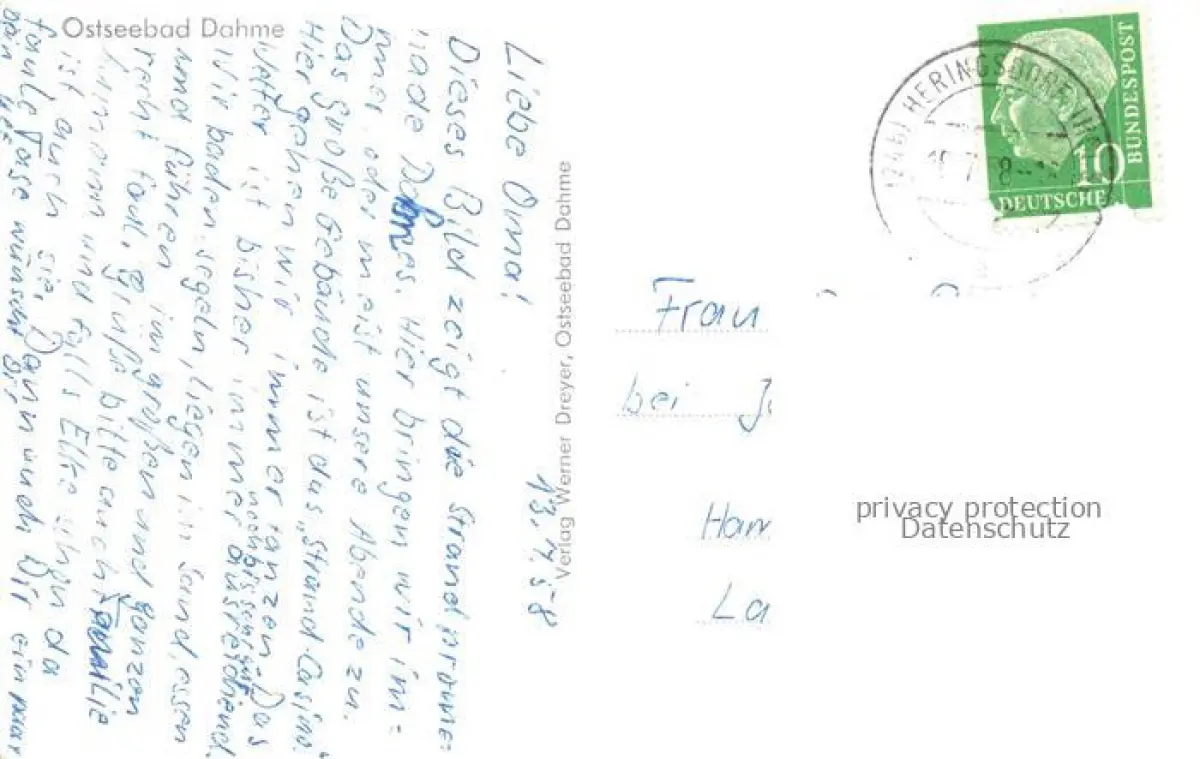 Ostseebad Dahme
13.7.58
Liebe Oma!
Dieses Bild zeigt die Strandprome=
nade Dahmes. Hier bringen wir im=
mer oder meist unsere Abende zu.
Das große Gebäude ist das „Strand-Casino"
Hier gehen wir immer tanzen. Das
Wetter ist bisher immer ausreichend.
Wir baden, segeln, liegen im Sand, essen
und führen im großen und ganzen
recht faul. Grüße bitte auch Familie
und falls Elke schon da
ist auch sie. Dann wünscht Dir ein paar
faule Tage
Verlag Werner Dreyer, Ostseebad Dahme
HERINGSDORF
10
DEUTSCHE
BUNDESPOST
Frau
bei J
Ham
La
privacy protection
Datenschutz